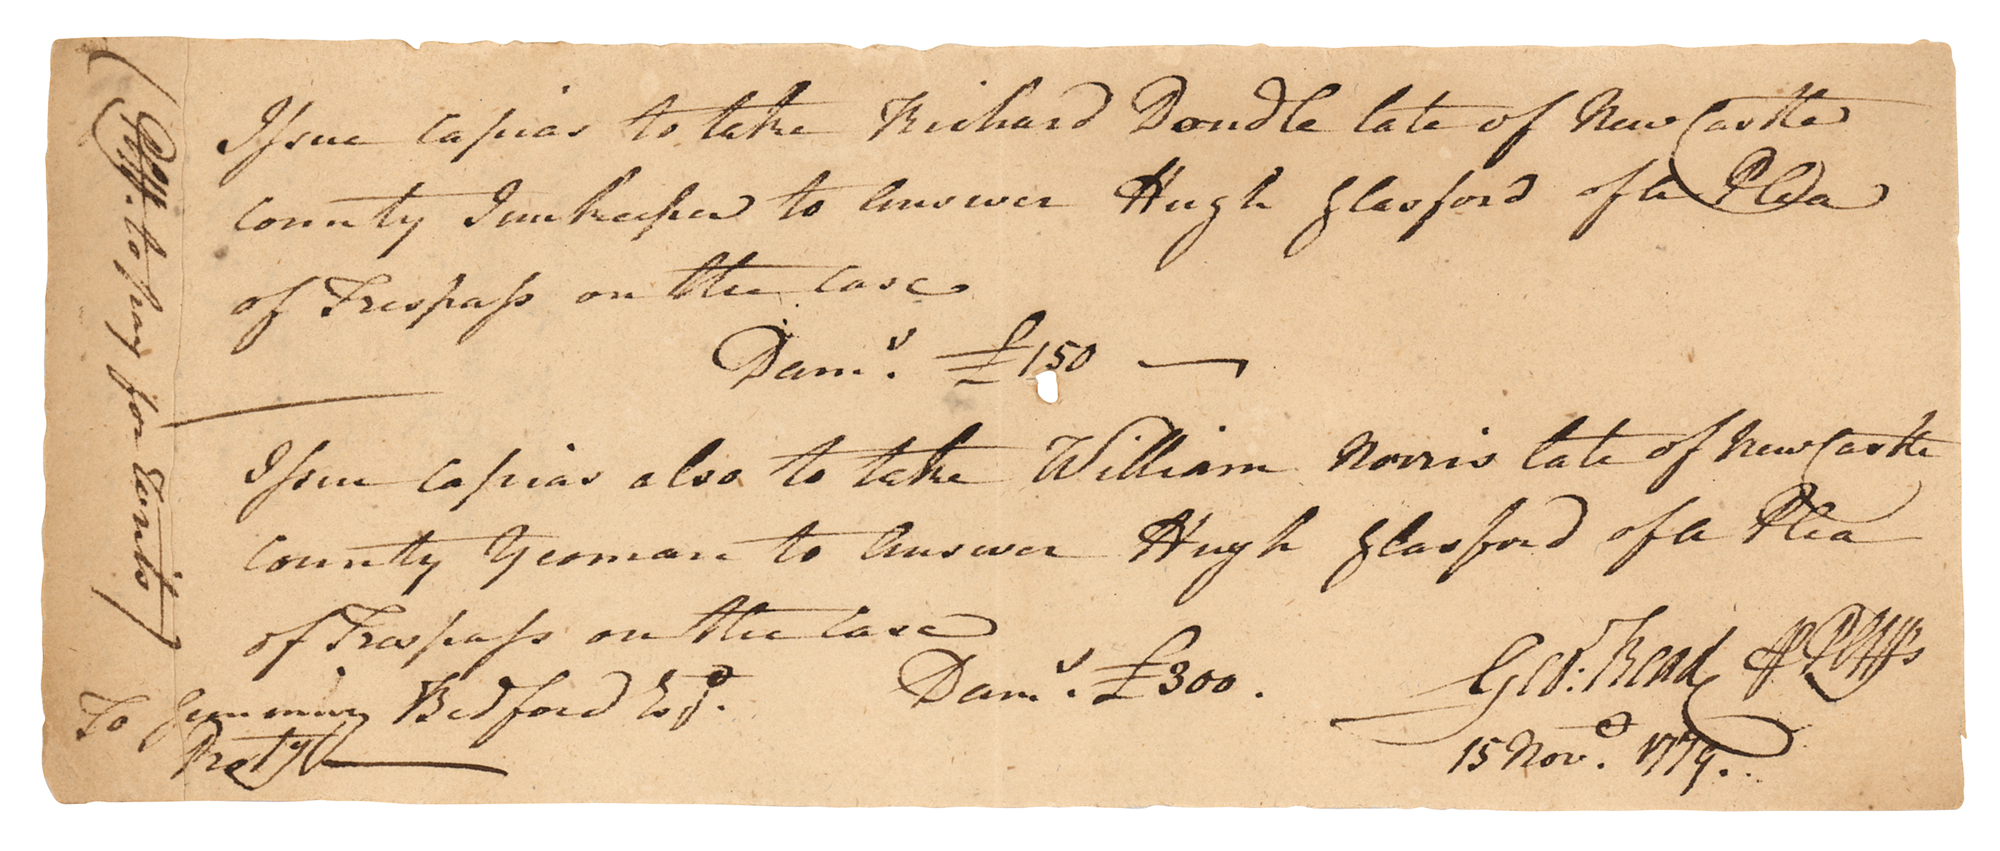 Issue Capias to take Richard Dondle late of New Castle
County Innkeeper to answer Hugh Glasford of a Plea
of Trespass on the Case
Dam.s £150 —
Issue Capias also to take William Norris late of New Castle
County Yeoman to answer Hugh Glasford of a Plea
of Trespass on the Case
Dam.s £300.
Geo: Read
15 Nov.r 1779.
To Gunning Bedford Esq.r
Prot.y
to pay for